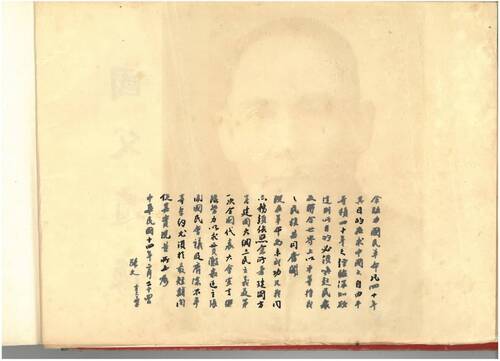 國父
余致力國民革命凡四十年
其目的在求中國之自由平
等積四十年之經驗深知欲
達到此目的必須喚起民衆
及聯合世界上以平等待我
之民族共同奮鬭
現在革命尚未成功凡我同
志務須依照余所著建國方
略建國大綱三民主義及第
一次全國代表大會宣言繼
續努力以求貫徹最近主張
開國民會議及廢除不平
等條約尤須於最短期間
促其實現是所至囑
中華民國十四年二月二十四日
孫文